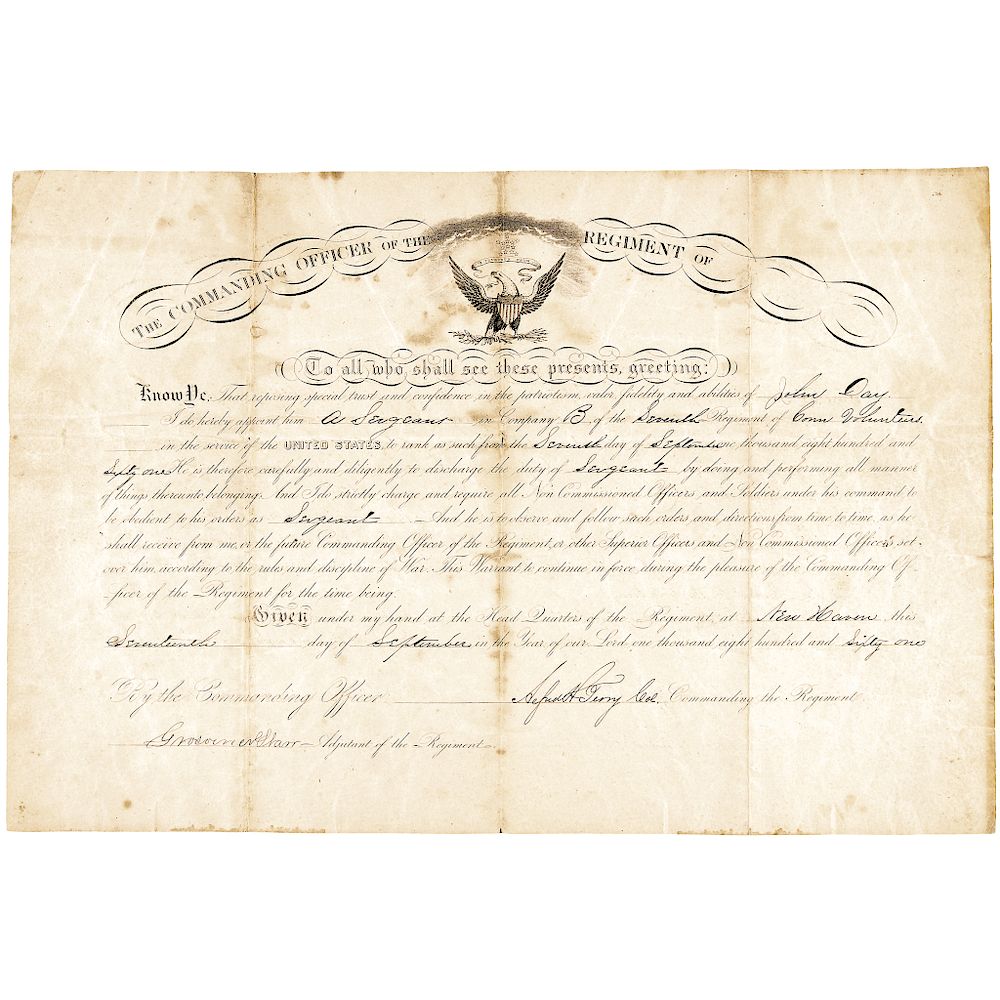 THE COMMANDING OFFICER OF THE REGIMENT OF
(To all who shall see these presents, greeting:)
Know Ye, That reposing special trust and confidence in the patriotism, valor, fidelity and abilities of John Day
I do hereby appoint him A Sergeant in Company B, of the Seventh Regiment of Conn Volunteers
in the service of the UNITED STATES, to rank as such from the Seventh day of September one thousand eight hundred and
Sixty one He is therefore carefully and diligently to discharge the duty of Sergeant by doing and performing all manner
of things thereunto belonging. And I do strictly charge and require all Non Commissioned Officers, and Soldiers under his command to
be obedient to his orders as Sergeant And he is to observe and follow such orders, and directions from time to time, as he
shall receive from me, or the future Commanding Officer of the Regiment, or other Superior Officers and Non Commissioned Officers set
over him, according to the rules and discipline of War. This Warrant to continue in force during the pleasure of the Commanding Of-
ficer of the Regiment for the time being.
Given under my hand at the Head Quarters of the Regiment, at New Haven this
Seventeenth day of September in the Year of our Lord one thousand eight hundred and sixty one
By the Commanding Officer Alfred H Terry Col. Commanding the Regiment.
Grosvenor Starr Adjutant of the Regiment.